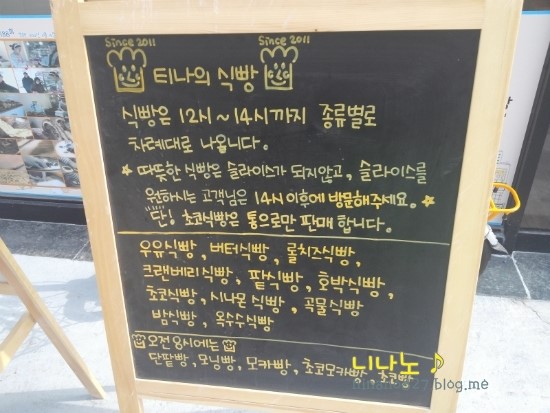 Since 2011 Since 2011
티나의 식빵
식빵은 12시~14시까지 종류별로
차례대로 나옵니다.
★ 따뜻한 식빵은 슬라이스가 되지않고, 슬라이스를
원하시는 고객님은 14시 이후에 방문해주세요. ★
단! 초코식빵은 통으로만 판매 합니다.
우유식빵, 버터식빵, 롤치즈식빵,
크랜베리식빵, 팥식빵, 호박식빵,
초코식빵, 시나몬식빵, 곡물식빵
밤식빵, 옥수수식빵
오전 8시에는
단팥빵, 모닝빵, 모카빵, 초코모카빵, 초코빵
니나노♪
blog.me